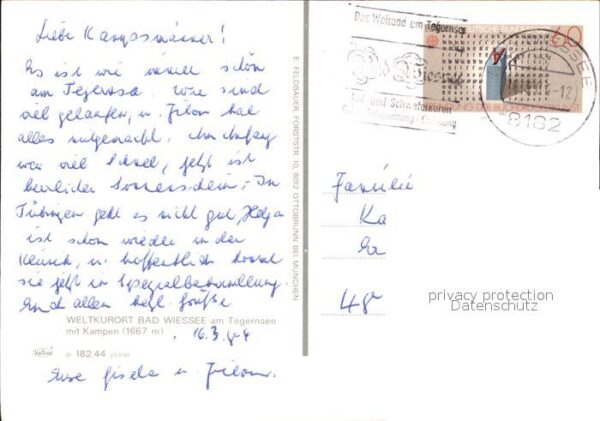 Liebe Kampsmänner!
Es ist wie immer schön
am Tegernsee. Wir sind
viel gelaufen, u. hat
alles mitgemacht. Am Anfang
war viel jetzt ist
herrlicher Sonnenschein. In
Tübingen geht es nicht gut, Helga
ist schon wieder in der
Klinik, u. hoffentlich kommt
sie jetzt in Spezialbehandlung.
Euch allen herzl. Grüße
WELTKURORT BAD WIESSEE am Tegernsee
mit Kampen (1667 m)
16.3.84
182.44
Eure Gisela u.
E. FELDBAUER, FORSTSTR. 10, 8012 OTTOBRUNN BEI MÜNCHEN
Das Weltbad am Tegernsee
Bad Wiessee
Jod- und Schwefelkuren
60
8182
Familie
Ka
48
privacy protection
Datenschutz